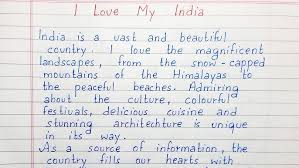 I Love My India
India is a vast and beautiful
country. I love the magnificent
landscapes, from the snow-capped
mountains of the Himalayas to
the peaceful beaches. Admiring
about the culture, colourful
festivals, delicious cuisine and
stunning architechture is unique
in its way.
As a source of information, the
country fills our hearts with